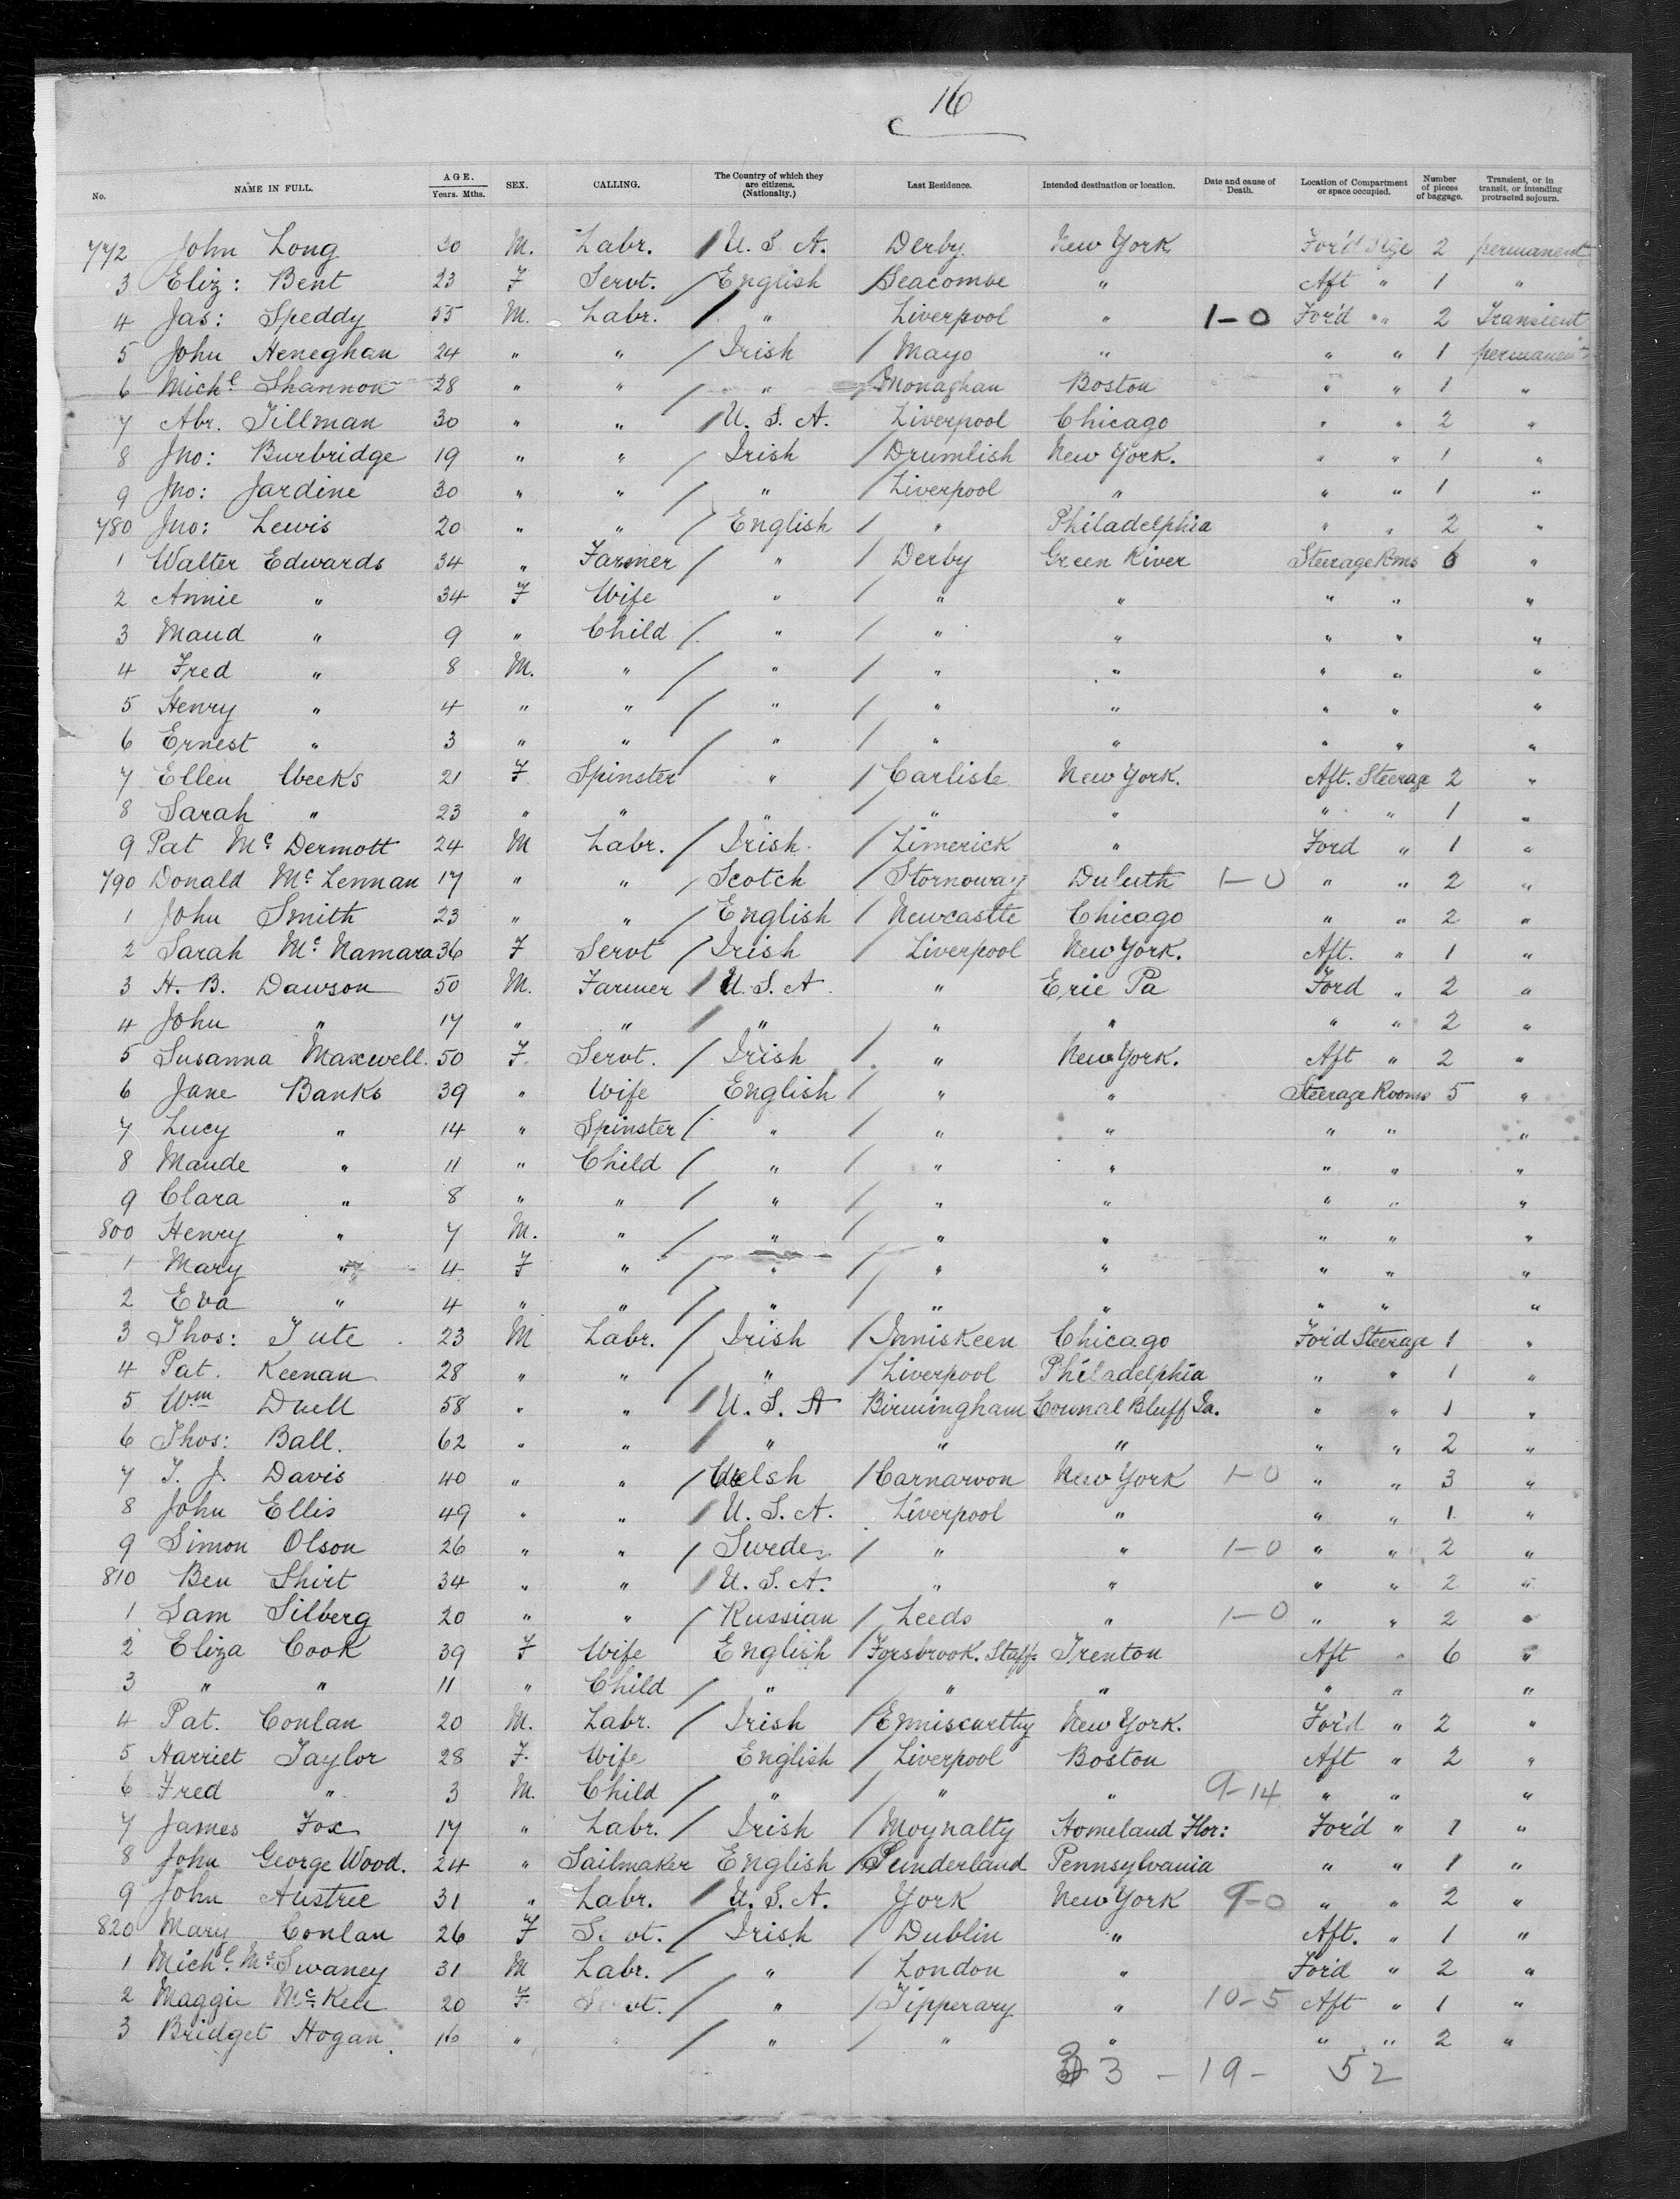 16
No. NAME IN FULL. AGE. Years. Mths. SEX. CALLING. The Country of which they are citizens. (Nationality.) Last Residence. Intended destination or location. Date and cause of Death. Location of Compartment or space occupied. Number of pieces of baggage. Transient, or in transit, or intending protracted sojourn.
772 John Long 30 M. Labr. / U. S. A. Derby New York For'd Stge 2 permanent
3 Eliz: Bent 23 F Servt. / English Seacombe " Aft " 1 "
4 Jas: Speddy 55 M. Labr. / " Liverpool " 1-0 For'd " " 2 Transient
5 John Heneghan 24 " " / Irish / Mayo " " " 1 permanent
6 Michl Shannon 28 " " / " / Monaghan Boston " " 1 "
7 Abr. Tillman 30 " " / U. S. A. Liverpool Chicago " " 2 "
8 Jno: Burbridge 19 " " / Irish / Drumlish New York. " " 1 "
9 Jno: Jardine 30 " " / " / Liverpool " " " 1 "
780 Jno: Lewis 20 " " / English / " Philadelphia " " 2 "
1 Walter Edwards 34 " Farmer / " / Derby Green River Steerage Rms 6 "
2 Annie " 34 F Wife " / " " " " "
3 Maud " 9 " Child / " / " " " " "
4 Fred " 8 M. " / " / " " " " "
5 Henry " 4 " " / " / " " " " "
6 Ernest " 3 " " / " / " " " " "
7 Ellen Weeks 21 F Spinster " / Carlisle New York. Aft. Steerage 2 "
8 Sarah " 23 " " " / " " " " 1 "
9 Pat McDermott 24 M Labr. / Irish / Limerick " Ford " 1 "
790 Donald McLennan 17 " " / Scotch / Stornoway Duluth 1-0 " " 2 "
1 John Smith 23 " " / English / Newcastle Chicago " " 2 "
2 Sarah McNamara 36 F Servt / Irish / Liverpool New York. Aft. " 1 "
3 H. B. Dawson 50 M. Farmer / U. S. A. " Erie Pa Ford " 2 "
4 John " 17 " " / " " " " " 2 "
5 Susanna Maxwell. 50 F. Servt. / Irish / " New York. Aft " 2 "
6 Jane Banks 39 " Wife English / " " Steerage Rooms 5 "
7 Lucy " 14 " Spinster / " / " " " " "
8 Maude " 11 " Child / " / " " " " "
9 Clara " 8 " " / " / " " " " "
800 Henry " 7 M. " / " / " " " " "
1 Mary " 4 F " / " / " " " " "
2 Eva " 4 " " / " / " " " " "
3 Thos: Tute 23 M Labr. / Irish / Inniskeen Chicago For'd Steerage 1 "
4 Pat. Keenan 28 " " / " / Liverpool Philadelphia " " 1 "
5 Wm Duell 58 " " / U. S. A Birmingham Counal Bluff Ia. " " 1 "
6 Thos: Ball. 62 " " / " " " " " 2 "
7 T. J. Davis 40 " " / Welsh / Carnarvon New York 1-0 " " 3 "
8 John Ellis 49 " " / U. S. A. Liverpool " " " 1 "
9 Simon Olson 26 " " / Swede / " " 1-0 " " 2 "
810 Ben Shirt 34 " " / U. S. A. " " " " 2 "
1 Sam Silberg 20 " " / Russian / Leeds " 1-0 " " 2 "
2 Eliza Cook 39 F Wife English / Forsbrook. Staffs Trenton Aft " 6 "
3 " " 11 " Child / " / " " " " "
4 Pat. Conlan 20 M. Labr. / Irish / Enniscurthy New York. For'd " 2 "
5 Harriet Taylor 28 F. Wife English / Liverpool Boston Aft " 2 "
6 Fred " 3 M. Child / " / " " 9-14 " " "
7 James Fox 17 " Labr. / Irish / Moynalty Homeland Flor: For'd " 1 "
8 John George Wood. 24 " Sailmaker English / Sunderland Pennsylvania " " 1 "
9 John Austree 31 " Labr. / U. S. A. York New York 9-0 " " 2 "
820 Mary Conlan 26 F Servt. / Irish / Dublin " Aft. " 1 "
1 Michl McSwaney 31 M Labr. / " / London " For'd " 2 "
2 Maggie McKee 20 F. Servt. / " / Tipperary " 10-5 Aft " 1 "
3 Bridget Hogan. 16 " " / " / " " " " 2 "
33 - 19 - 52